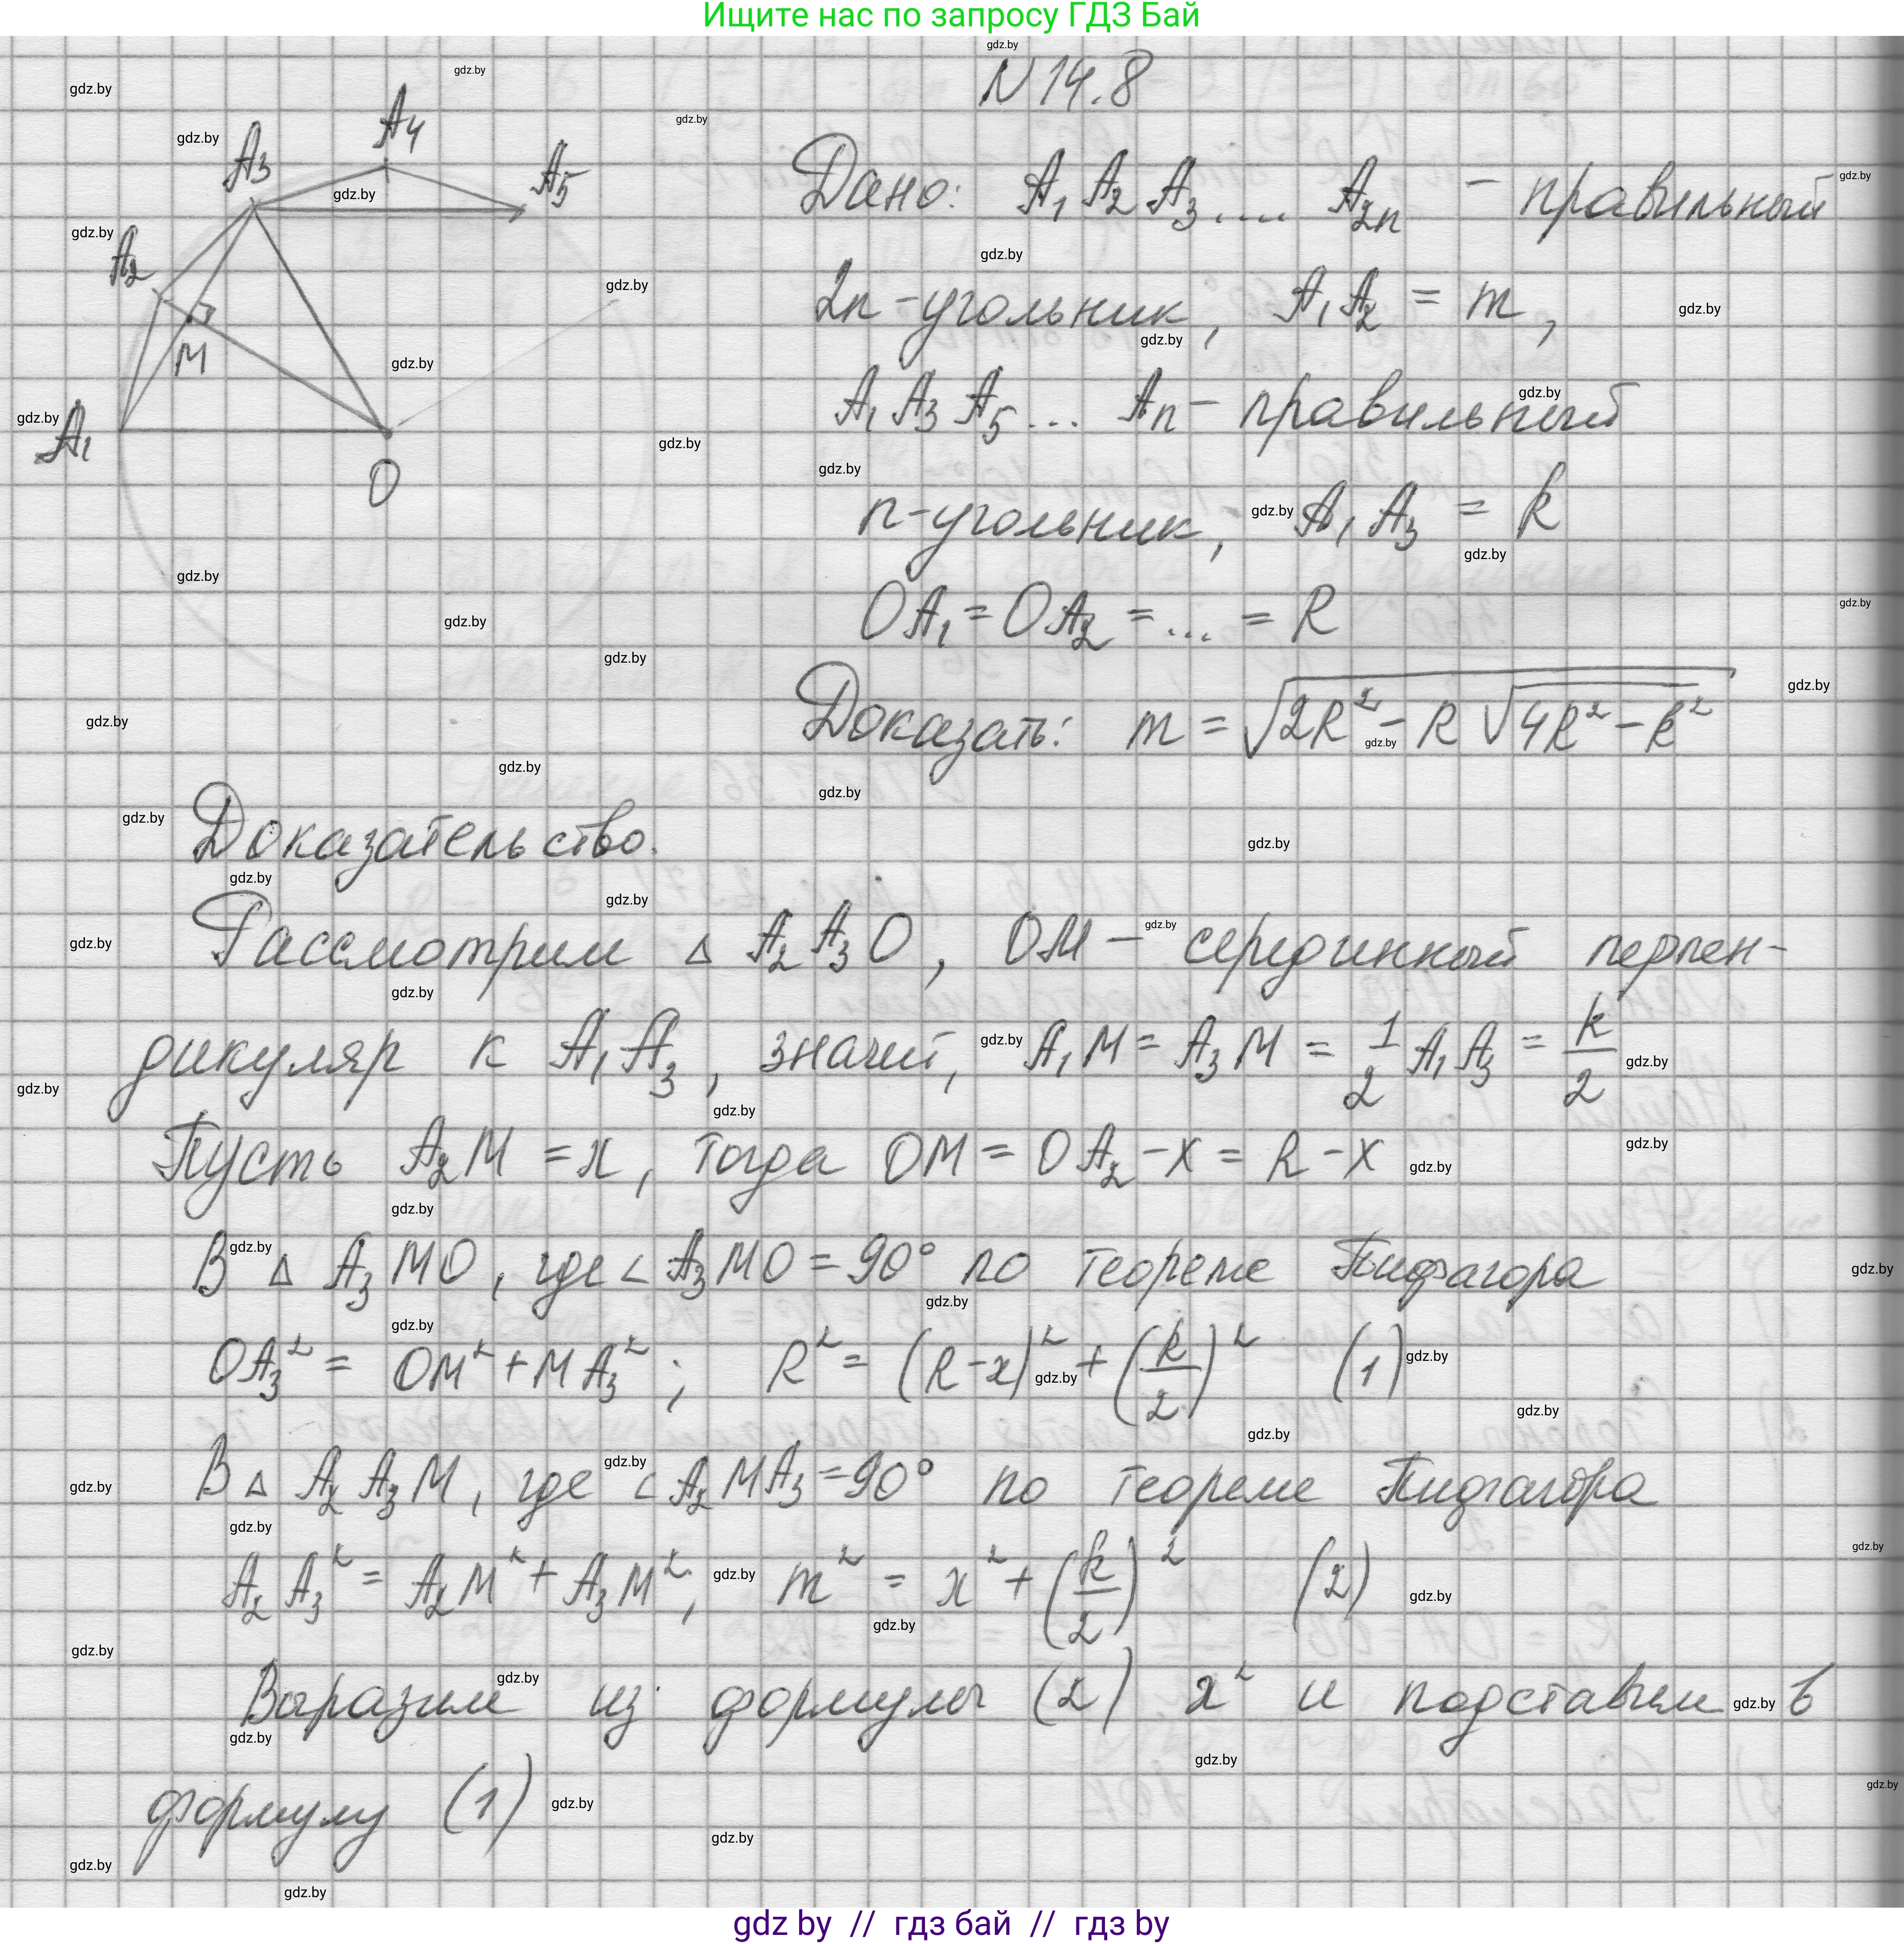 Ищите нас по запросу ГДЗ Бай
N 14.8
A₃ A₄ A₅
A₂
M
A₁
O
Дано: A₁ A₂ A₃.... A₂ₙ - правильный
2n-угольник, A₁A₂ = m,
A₁ A₃ A₅ ... Aₙ - правильный
n-угольник, A₁A₃ = k
OA₁ = OA₂ = ... = R
Доказать: m = √(2R² - R √(4R² - k²))
Доказательство.
Рассмотрим △ A₂A₃O, OM - серединный перпен-
дикуляр к A₁A₃, значит, A₁M = A₃M = 1/2 A₁A₃ = k/2
Пусть A₂M = x, тогда OM = OA₂ - x = R - x
В △ A₃MO, где ∠A₃MO = 90° по теореме Пифагора
OA₃² = OM² + MA₃²; R² = (R-x)² + (k/2)² (1)
В △ A₂A₃M, где ∠A₂MA₃ = 90° по теореме Пифагора
A₂A₃² = A₂M² + A₃M², m² = x² + (k/2)² (2)
Выразим из формулы (2) x² и подставим в
формулу (1)
gdz by // гдз бай // гдз by